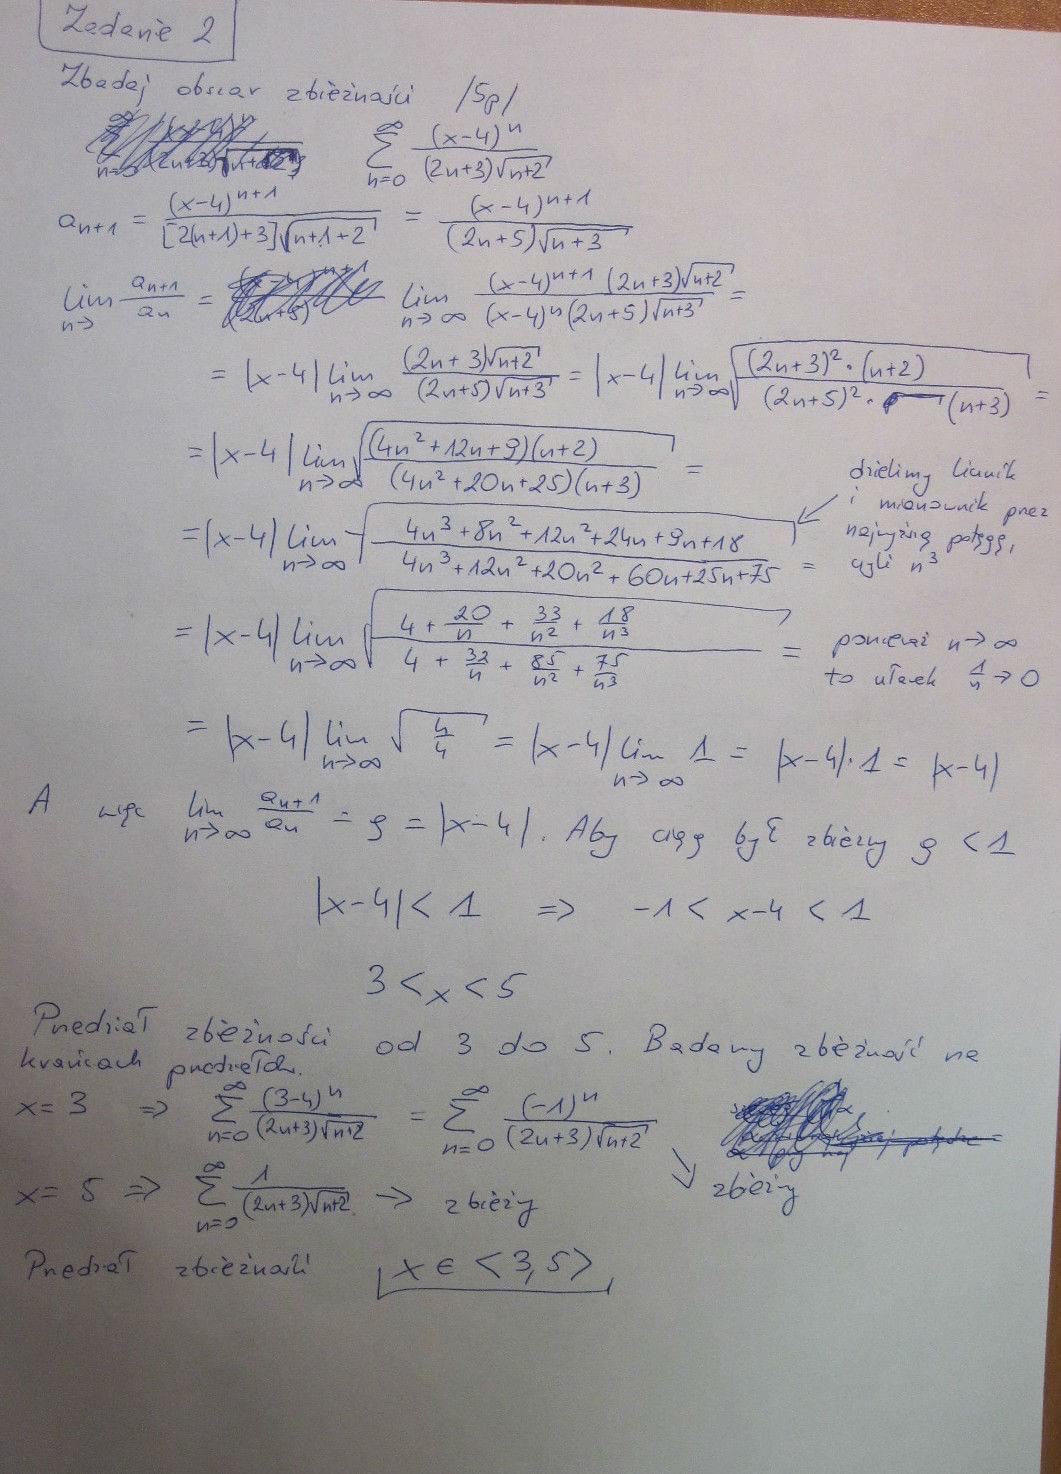 Zadanie 2
Zbadaj obszar zbieżności /5p/
∑_{n=0}^{∞} (x-4)^n / ((2n+3)√(n+2))
a_{n+1} = (x-4)^{n+1} / ([2(n+1)+3]√(n+1+2)) = (x-4)^{n+1} / ((2n+5)√(n+3))
lim_{n→} a_{n+1}/a_n = lim_{n→∞} (x-4)^{n+1} (2n+3)√(n+2) / ((x-4)^n (2n+5)√(n+3)) =
= |x-4| lim_{n→∞} (2n+3)√(n+2) / ((2n+5)√(n+3)) = |x-4| lim_{n→∞} √((2n+3)²·(n+2) / ((2n+5)²·(n+3))) =
= |x-4| lim_{n→∞} √((4n²+12n+9)(n+2) / ((4n²+20n+25)(n+3))) =
dzielimy licznik
i mianownik przez
najwyższą potęgę,
czyli n³
= |x-4| lim_{n→∞} √((4n³+8n²+12n²+24n+9n+18) / (4n³+12n²+20n²+60n+25n+75)) =
= |x-4| lim_{n→∞} √((4 + 20/n + 33/n² + 18/n³) / (4 + 32/n + 85/n² + 75/n³)) =
ponieważ n→∞
to ułamek 1/n → 0
= |x-4| lim_{n→∞} √(4/4) = |x-4| lim_{n→∞} 1 = |x-4|·1 = |x-4|
A więc lim_{n→∞} a_{n+1}/a_n = g = |x-4|. Aby ciąg był zbieżny g < 1
|x-4| < 1 => -1 < x-4 < 1
3 < x < 5
Przedział zbieżności od 3 do 5. Badamy zbieżność na
krańcach przedziałów.
x = 3 => ∑_{n=0}^{∞} (3-4)^n / ((2n+3)√(n+2)) = ∑_{n=0}^{∞} (-1)^n / ((2n+3)√(n+2)) ↘ zbieżny
x = 5 => ∑_{n=0}^{∞} 1 / ((2n+3)√(n+2)) → zbieżny
Przedział zbieżności x ∈ <3,5>